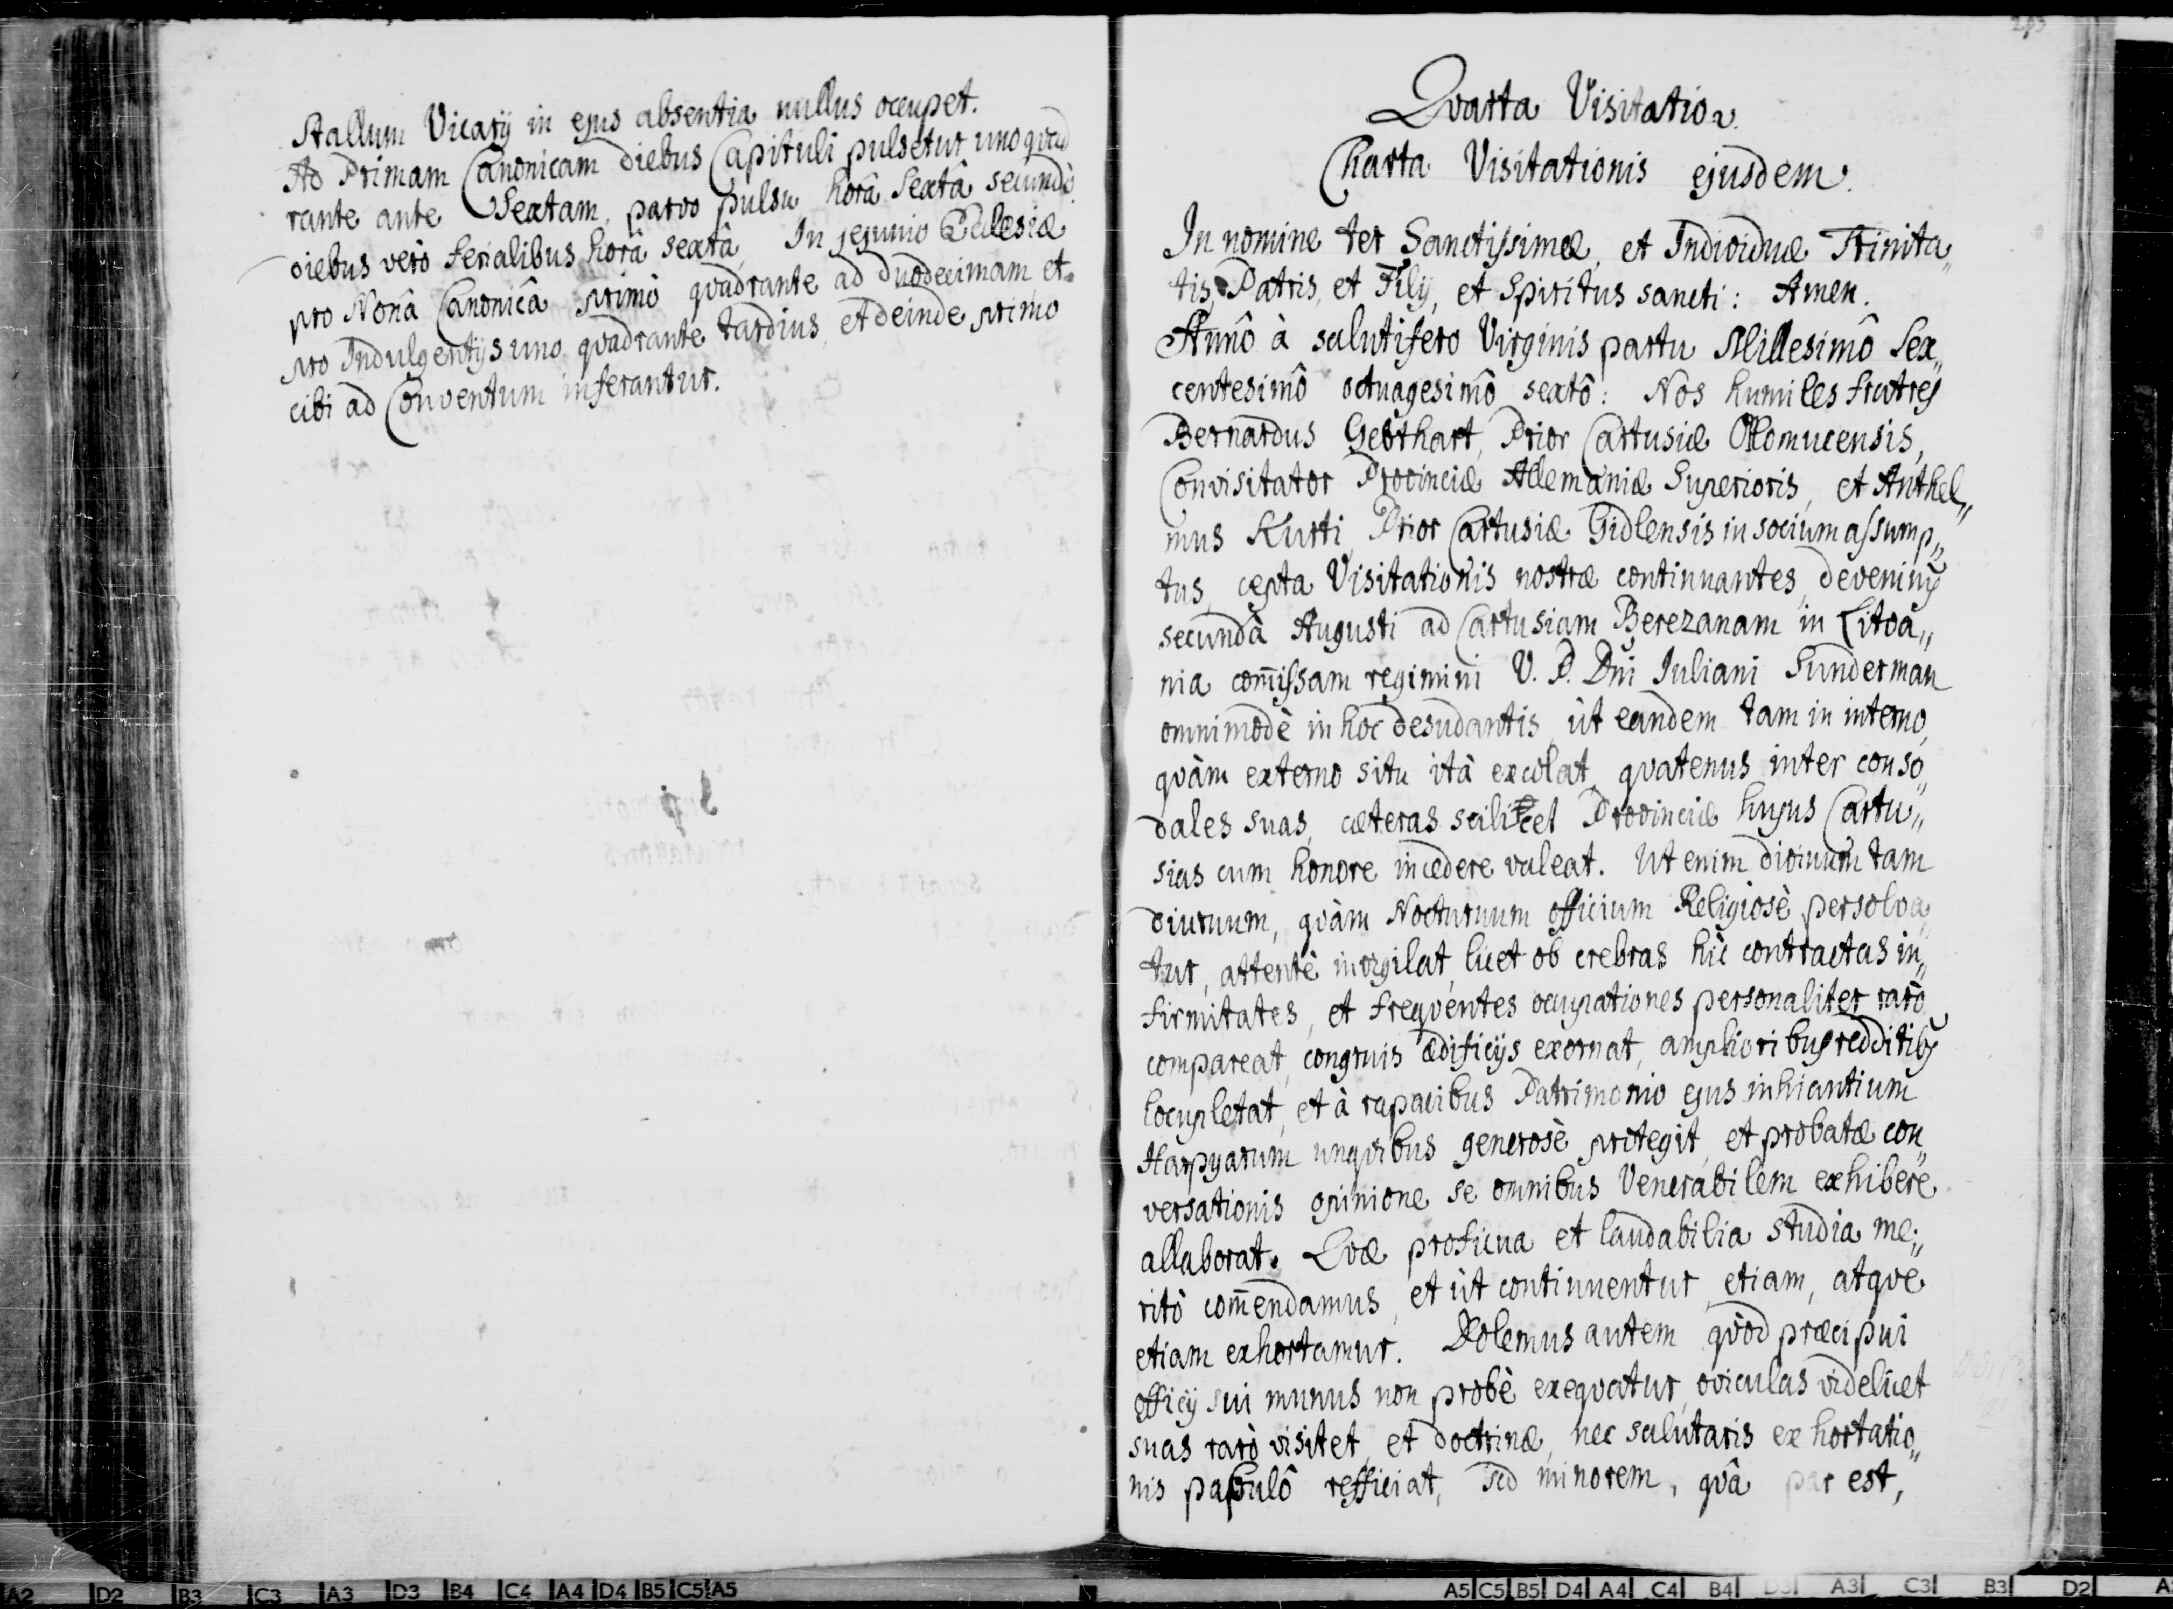 Stallum Vicarij in ejus absentia nullus occupet.
Ad Primam Canonicam diebus Capituli pulsetur uno quad
rante ante Sextam, parvo pulsu horâ Sextâ secundò
diebus verò ferialibus horâ sextâ, In jejunio Ecclesiæ
pro Nonâ Canonicâ primò quadrante ad duodecimam et
pro Indulgentijs uno quadrante tardius, et deinde primo
cibi ad Conventum inferantur.
Qvarta Visitatio.
Charta Visitationis ejusdem.
In nomine ter Sanctissimæ, et Individuæ Trinita„
tis, Patris, et Filij, et Spiritus sancti: Amen.
Annô à salutifero Virginis partu Millesimô Sex„
centesimô octuagesimô sextô: Nos humiles fratres
Bernardus Gebthart, Prior Cartusiæ Olomucensis,
Convisitator Provinciæ Alemaniæ Superioris, et Anthel„
mus Kurti, Prior Cartusiæ Gidlensis in socium assump„
tus, cepta Visitationis nostræ continuantes, devenimus
secundâ Augusti ad Cartusiam Berezanam in Litva„
nia com̄issam regimini V. P. Dñi Juliani Sunderman
omnimodè in hoc desudantis, ùt eandem tam in interno,
quàm externo situ ità excolat, qvatenus inter conso„
dales suas, cæteras scilicet Provinciæ hujus Cartu„
sias cum honore incedere valeat. Ut enim divinum tam
diurnum, qvàm Nocturnum officium Religiosè persolva„
tur, attentè invigilat, licet ob crebras hìc contractas in„
firmitates, et freqventes occupationes personaliter rarò
compareat, congruis ædificijs exornat, amplioribus redditibus
locupletat, et à rapacibus Patrimonio ejus inhiantium
Harpyarum ungvibus generosè protegit, et probatæ con„
versationis opinione se omnibus Venerabilem exhibere
allaborat. Qvæ proficua et laudabilia studia me„
ritò com̄endamus, et ùt continuentur, etiam, atqve
etiam exhortamur. Dolemus autem qvòd præcipui
officij sui munus non probè exeqvatur, oviculas videlicet
suas rarò visitet, et doctrinæ, nec salutaris exhortatio„
nis pabulô refficiat, sed minorem, qvâ par est,